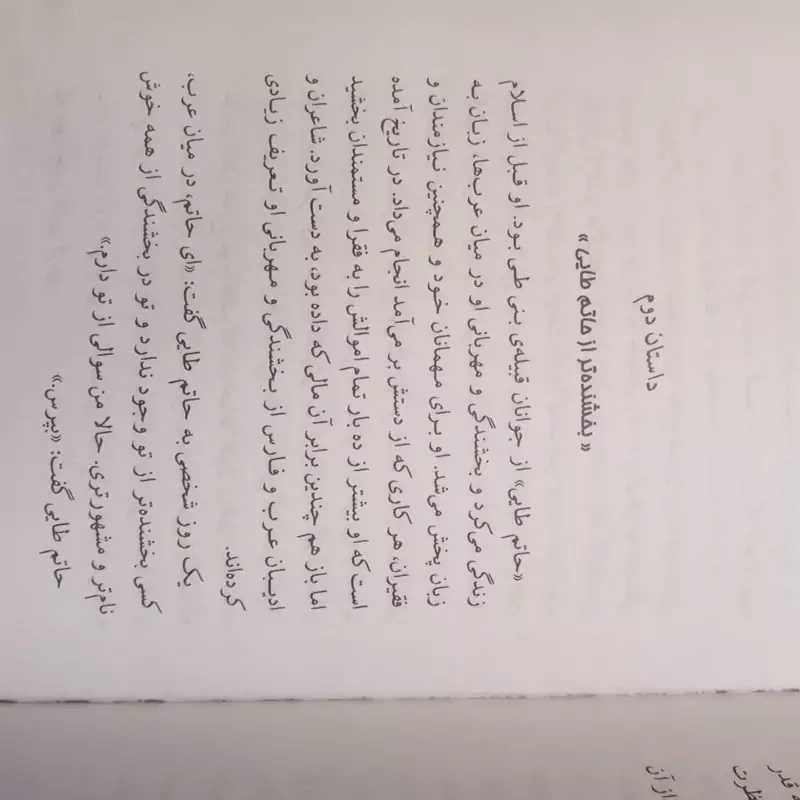 داستان دوم
«بخشنده‌تر از حاتم طایی»
«حاتم طایی» از جوانان قبیله‌ی بنی طی بود. او قبل از اسلام
زندگی می‌کرد و بخشندگی و مهربانی او در میان عرب‌ها، زبان به
زبان پخش می‌شد. او برای مهمانان خود و همچنین نیازمندان و
فقیران، هر کاری که از دستش بر می‌آمد انجام می‌داد. در تاریخ آمده
است که او بیشتر از ده بار تمام اموالش را به فقرا و مستمندان بخشید
اما باز هم چندین برابر آن مالی که داده بود، به دست آورد. شاعران و
ادیبان عرب و فارس از بخشندگی و مهربانی او تعریف زیادی
کرده‌اند.
یک روز شخصی به حاتم طایی گفت: «ای حاتم، در میان عرب،
کسی بخشنده‌تر از تو وجود ندارد و تو در بخشندگی از همه خوش
نام‌تر و مشهورتری. حالا من سوالی از تو دارم.»
حاتم طایی گفت: «بپرس.»
از آن
قدر